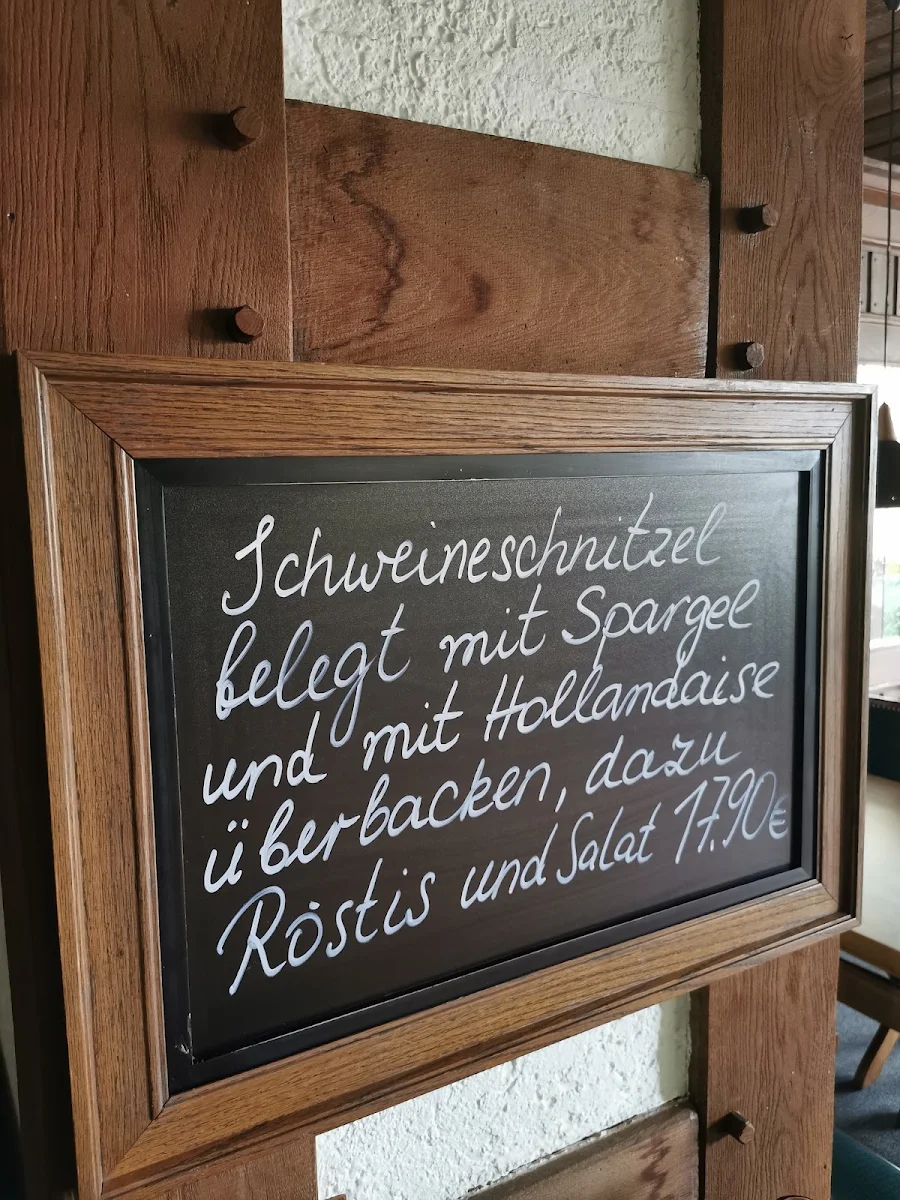 Schweineschnitzel
belegt mit Spargel
und mit Hollandaise
überbacken, dazu
Röstis und Salat 17.90€